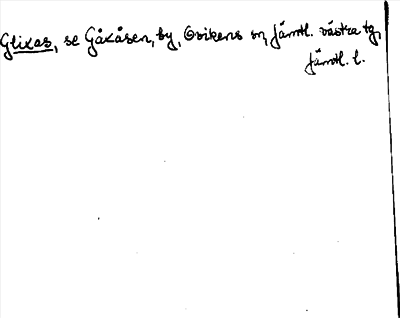 Glixas, se Gåxåsen, by, Ovikens sn, Jämtl. västra tg,
Jämtl. l.